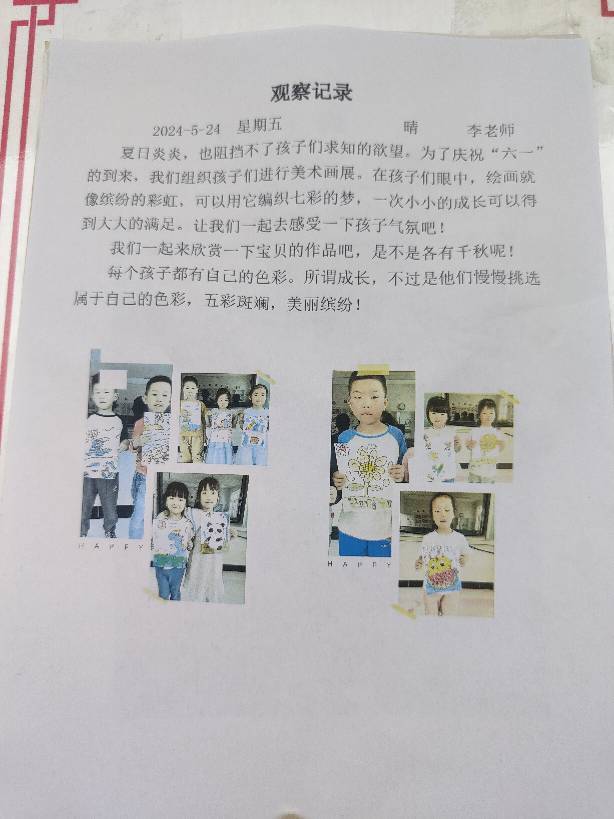 观察记录
2024-5-24 星期五 晴 李老师
夏日炎炎，也阻挡不了孩子们求知的欲望。为了庆祝“六一”
的到来，我们组织孩子们进行美术画展。在孩子们眼中，绘画就
像缤纷的彩虹，可以用它编织七彩的梦，一次小小的成长可以得
到大大的满足。让我们一起去感受一下孩子气氛吧！
我们一起来欣赏一下宝贝的作品吧，是不是各有千秋呢！
每个孩子都有自己的色彩。所谓成长，不过是他们慢慢挑选
属于自己的色彩，五彩斑斓，美丽缤纷！
HAPPY
HAPPY